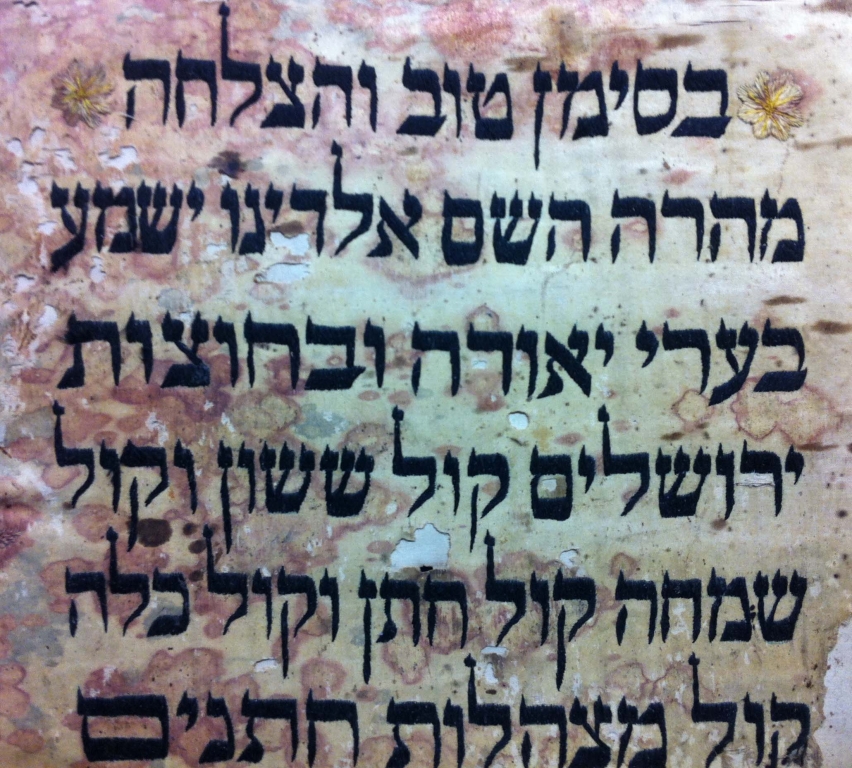 בסימן טוב והצלחה
מהרה השם אלדינו ישמע
בערי יאודה ובחוצות
ירושלים קול ששון וקול
שמחה קול חתן וקול כלה
קול מצהלות חתנים